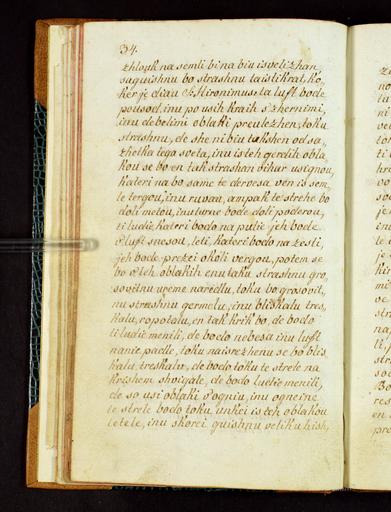 34.
zhlovk na semli bi na biu isvelizhan,
saguishnu bo strashnu taisti krat, ko,
ker je diau S. Hironimus ta luft bode
pousod, inu po usih kraih s'zhernimi,
inu debelimi oblaki preulezhen, toku
strashnu, de she ni biu takshen od sa,
zhetka tega sveta, inu is teh gerdih obla,
kou se bo en tak strashan vihar usignou,
kateri na bo samo te dervesa ven is sem,
le tergou, inu ruvau, ampak te strehe bo
doli metou, inu turne bode doli poderou,
ti ludie kateri bodo na putie jeh bode
v'luft snesou, leti, kateri bodo na zesti,
jeh bode prezei okoli vergou, potem se
bo v'teh oblakih enu taku strashnu gro,
sovitnu ureme naredlu, toku bo grosovit,
nu strashnu germelu, inu bliskalu tres,
kalu, ropotalu, en tak krik bo, de bodo
ti ludie menili, de bodo nebesa inu luft
nanie padle, toku naisrezhenu se bo blis,
kalu, treskalu, de bodo toku te strele na
krishem shvigale, de bodo ludie menili,
de so usi oblaki v'ogniu, inu ogneine
te strele bodo toku unkei is teh oblakou
letele, inu skorei guishnu veliku hish,